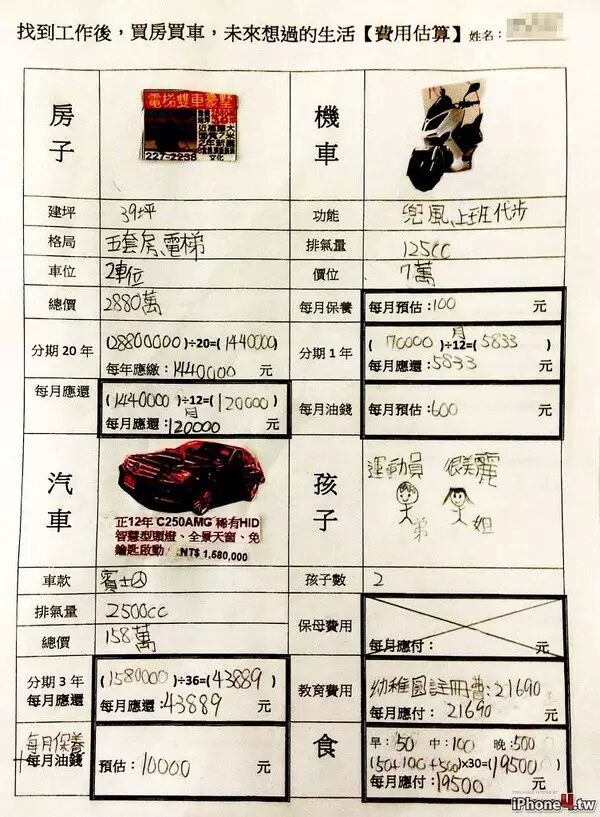 找到工作後，買房買車，未來想過的生活【費用估算】姓名：
房子
電梯雙車豪墅
227-2238
機車
建坪 39坪
功能 兜風、上班代步
格局 五套房、電梯
排氣量 125cc
車位 2車位
價位 7萬
總價 2880萬
每月保養 每月預估：100 元
分期20年 (28800000)÷20=(1440000)
每年應繳：1440000 元
分期1年 (70000)÷12=(5833)
月
每月應還：5833 元
每月應還 (1440000)÷12=(120000)
月
每月應還：120000 元
每月油錢 每月預估：600 元
汽車
正12年 C250AMG 稀有HID
智慧型頭燈、全景天窗、免
鑰匙啟動 NT$ 1,580,000
孩子
運動員 很美麗
弟 姐
車款 賓士
孩子數 2
排氣量 2500cc
保母費用 每月應付： 元
總價 158萬
分期3年
每月應還
(1580000)÷36=(43889)
每月應還：43889 元
教育費用 幼稚園註冊費：21690
每月應付：21690 元
每月保養
+每月油錢
預估：10000 元
食
早：50 中：100 晚：500
(50+100+500)x30=(19500)
每月應付：19500 元
iPhone4.tw